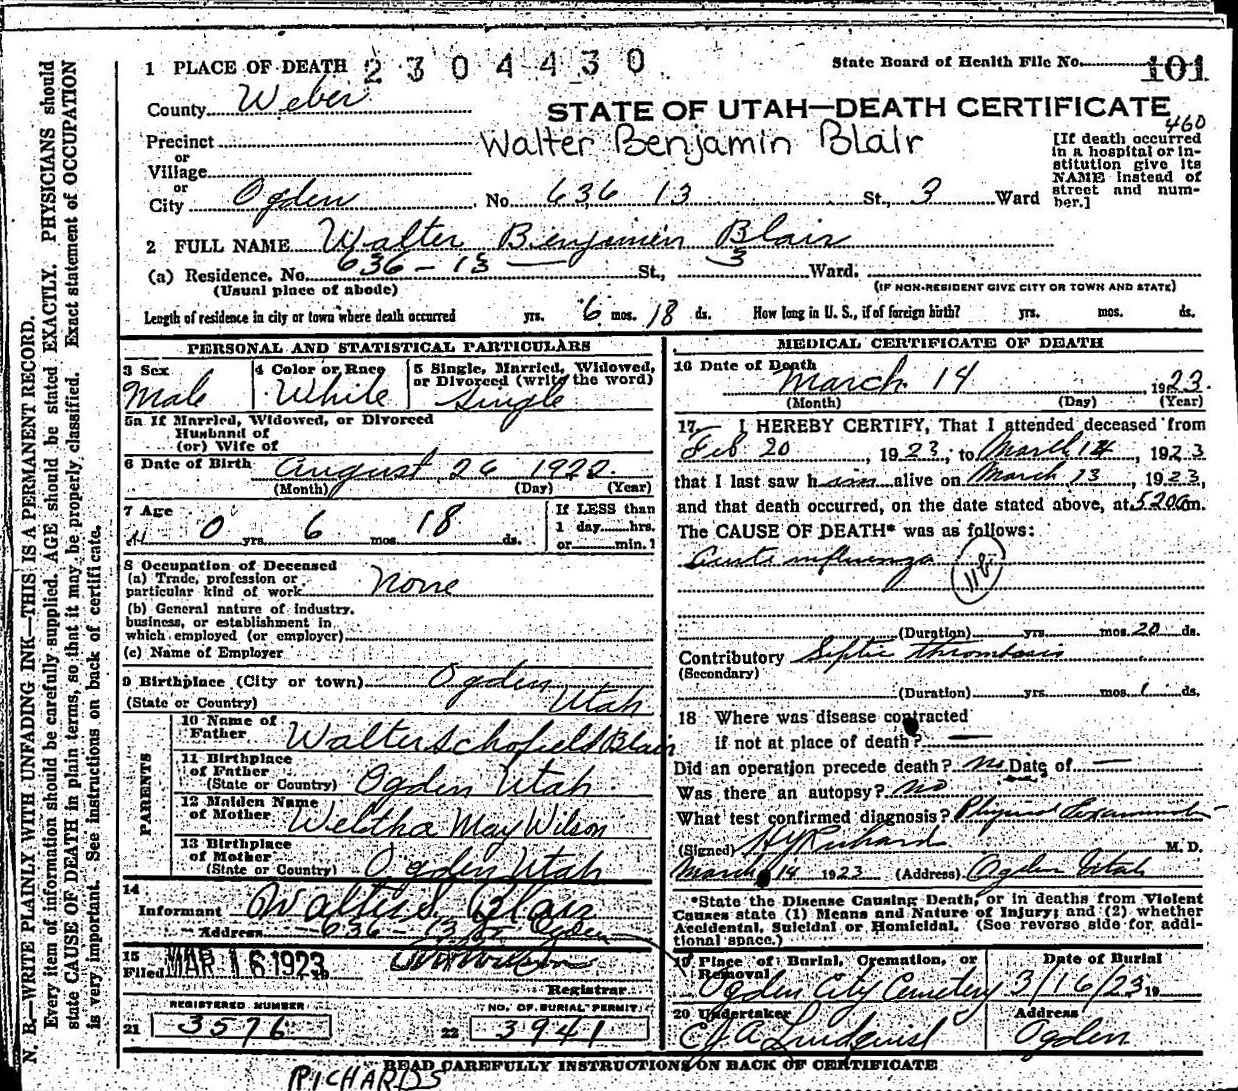 1 PLACE OF DEATH 2 3 0 4 4 3 0
State Board of Health File No. 101
County Weber
STATE OF UTAH—DEATH CERTIFICATE
460
Precinct
Walter Benjamin Blair
or
Village
or
City Ogden No. 636 13 St., 3 Ward
[If death occurred
in a hospital or in-
stitution give its
NAME instead of
street and num-
ber.]
2 FULL NAME Walter Benjamin Blair
(a) Residence. No. 636 - 13 St., 3 Ward.
(Usual place of abode)
(IF NON-RESIDENT GIVE CITY OR TOWN AND STATE)
Length of residence in city or town where death occurred yrs. 6 mos. 18 ds. How long in U. S., if of foreign birth? yrs. mos. ds.
PERSONAL AND STATISTICAL PARTICULARS
3 Sex
Male
4 Color or Race
White
5 Single, Married, Widowed,
or Divorced (write the word)
Single
5a If Married, Widowed, or Divorced
Husband of
(or) Wife of
6 Date of Birth August 26 1922.
(Month) (Day) (Year)
7 Age
0 yrs. 6 mos. 18 ds.
If LESS than
1 day......hrs.
or......min.?
8 Occupation of Deceased
(a) Trade, profession or
particular kind of work None
(b) General nature of industry,
business, or establishment in
which employed (or employer)
(c) Name of Employer
9 Birthplace (City or town) Ogden
(State or Country) Utah
PARENTS
10 Name of
Father Walter Schofield Blair
11 Birthplace
of Father
(State or Country) Ogden Utah
12 Maiden Name
of Mother Weltha May Wilson
13 Birthplace
of Mother
(State or Country) Ogden Utah
14
Informant Walter S. Blair
Address 636 - 13 St Ogden
15
Filed MAR 16 1923
Registrar
REGISTERED NUMBER
21 3576
NO. OF BURIAL PERMIT
22 3941
MEDICAL CERTIFICATE OF DEATH
16 Date of Death
March 14, 1923.
(Month) (Day) (Year)
17 I HEREBY CERTIFY, That I attended deceased from
Feb 20, 1923, to March 14, 1923
that I last saw him alive on March 13, 1923,
and that death occurred, on the date stated above, at 5 20 am.
The CAUSE OF DEATH* was as follows:
Acute influenza
118
(Duration) yrs. mos. 20 ds.
Contributory Septic thrombosis
(Secondary)
(Duration) yrs. mos. 1 ds.
18 Where was disease contracted
if not at place of death? —
Did an operation precede death? no Date of —
Was there an autopsy? no
What test confirmed diagnosis? Physical Examination
(Signed) H Y Richard M. D.
March 14 1923 (Address) Ogden Utah
*State the Disease Causing Death, or in deaths from Violent
Causes state (1) Means and Nature of Injury; and (2) whether
Accidental, Suicidal or Homicidal. (See reverse side for addi-
tional space.)
19 Place of Burial, Cremation, or
Removal
Ogden City Cemetery
Date of Burial
3/16/23 19
20 Undertaker
C J A Lindquist
Address
Ogden
READ CAREFULLY INSTRUCTIONS ON BACK OF CERTIFICATE
RICHARDS
N. B.—WRITE PLAINLY WITH UNFADING INK—THIS IS A PERMANENT RECORD.
Every item of information should be carefully supplied. AGE should be stated EXACTLY. PHYSICIANS should
state CAUSE OF DEATH in plain terms, so that it may be properly classified. Exact statement of OCCUPATION
is very important. See instructions on back of certificate.